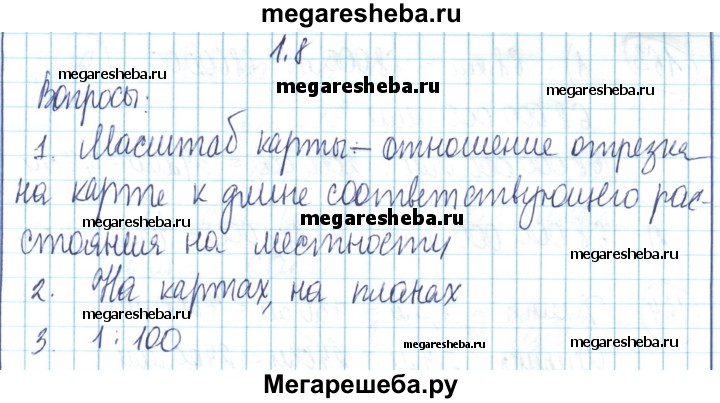 megaresheba.ru
1.8
megaresheba.ru
megaresheba.ru
megaresheba.ru
Вопросы:
1. Масштаб карты – отношение отрезка
на карте к длине соответствующего рас-
megaresheba.ru
megaresheba.ru
megaresheba.ru
стояния на местности
2. На картах, на планах
megaresheba.ru
megaresheba.ru
megaresheba.ru
3. 1 : 100
Мегарешеба.ру